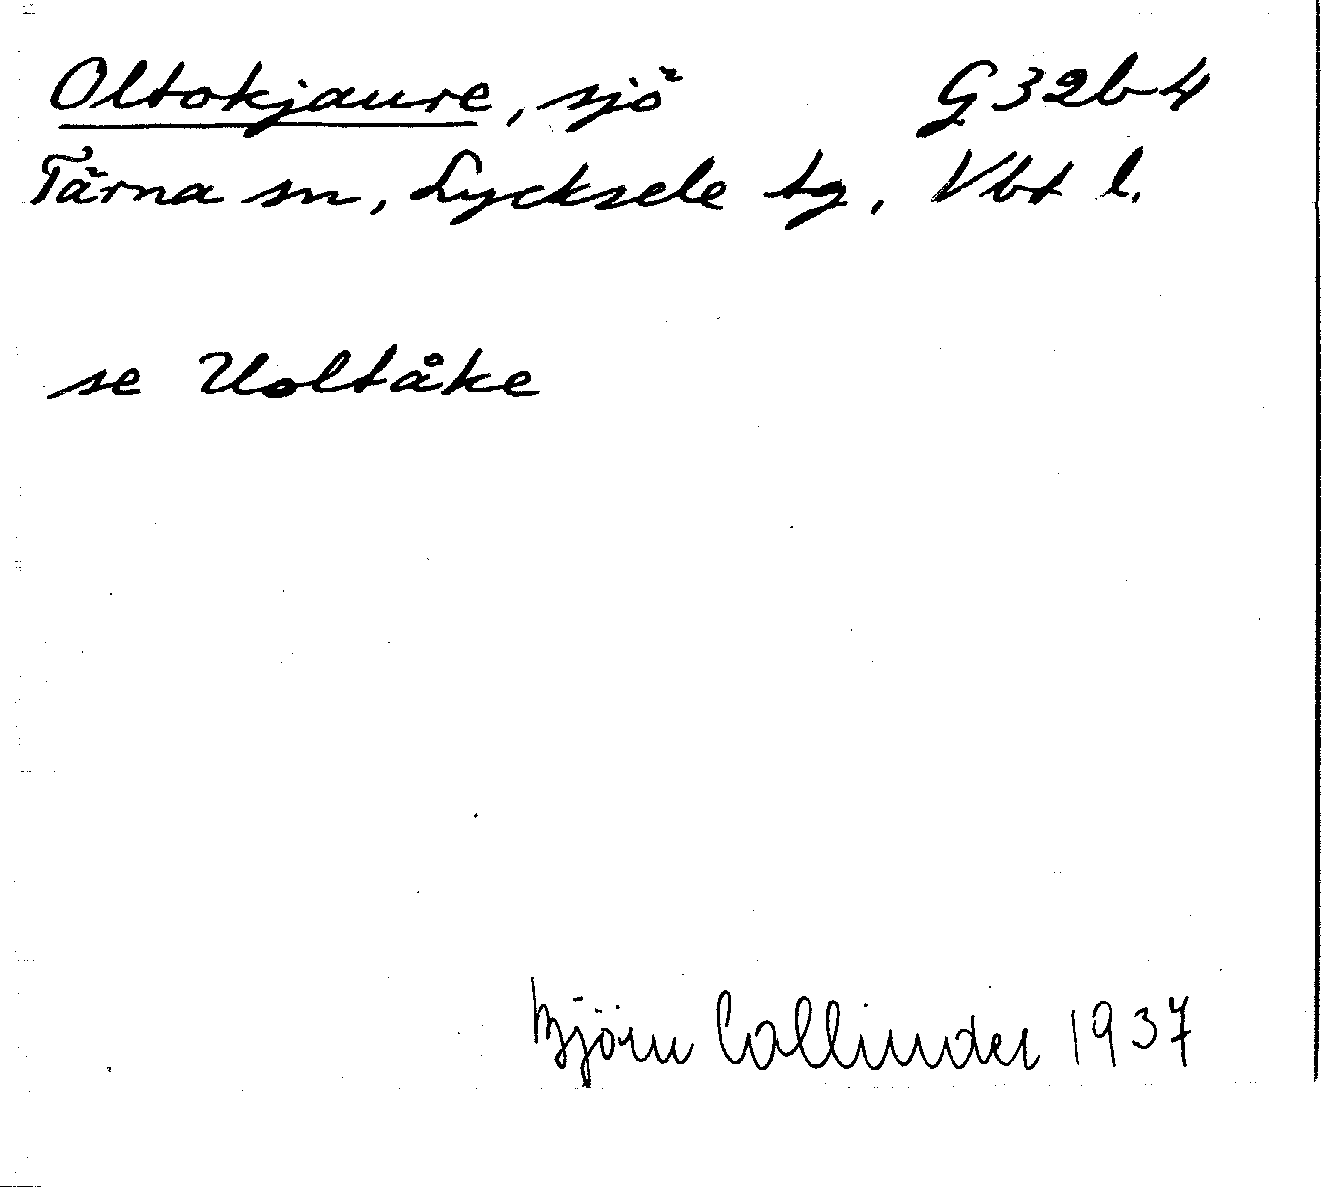 Oltokjaure, sjö G32b4
Tärna sn, Lycksele tg, Vbt l.
se Uoltåke
Björn Collinder 1937